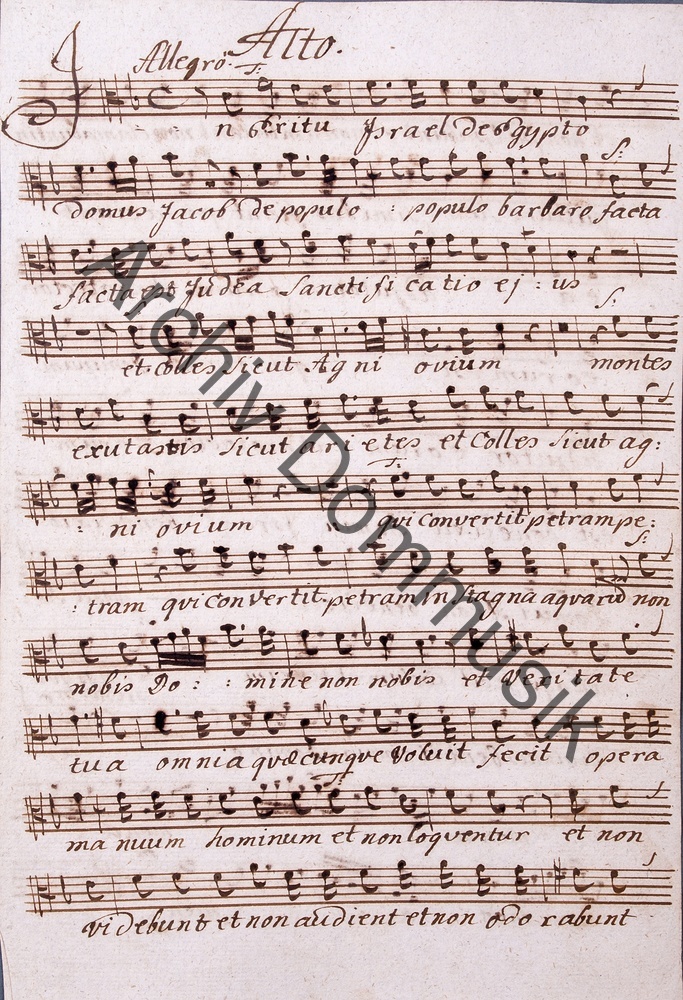 Alto.
Allegrò. T:
In exitu Jsrael de Egypto
S:
domus Jacob de populo : populo barbaro facta
facta est Judea Sanctificatio ej : us
S:
et Colles Sicut Agni ovium montes
exutastis Sicut arietes et Colles Sicut ag:
T:
: ni ovium qvi Convertit petram pe:
S:
: tram qvi Convertit petram in Stagna aqvarū non
nobis Do : : mine non nobis et Veritate
tua omnia qvæcunqve Voluit fecit opera
T
manuum hominum et non loqventur et non
videbunt et non audient et non odorabunt
Archiv Dommusik